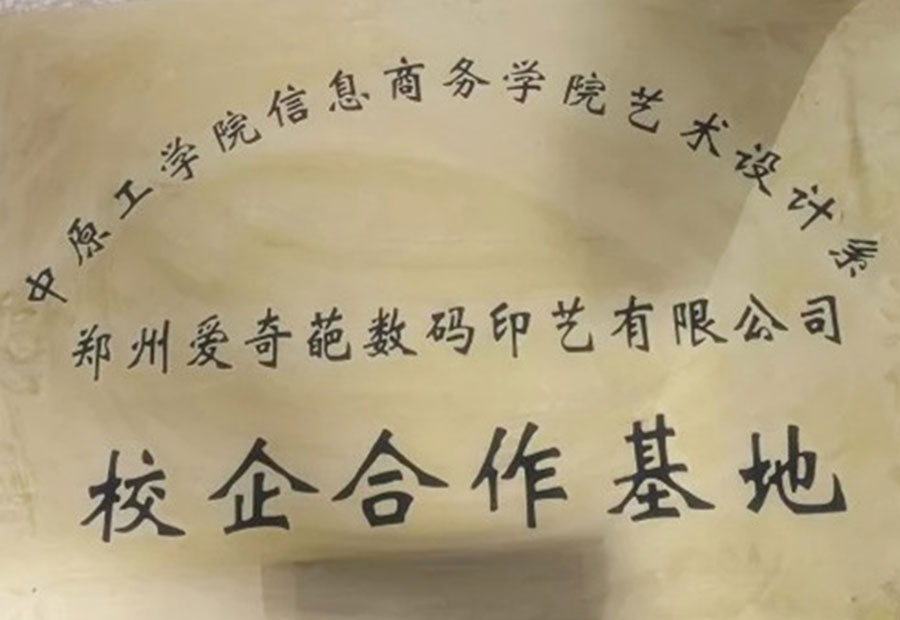 中原工学院信息商务学院艺术设计系
郑州爱奇葩数码印艺有限公司
校企合作基地